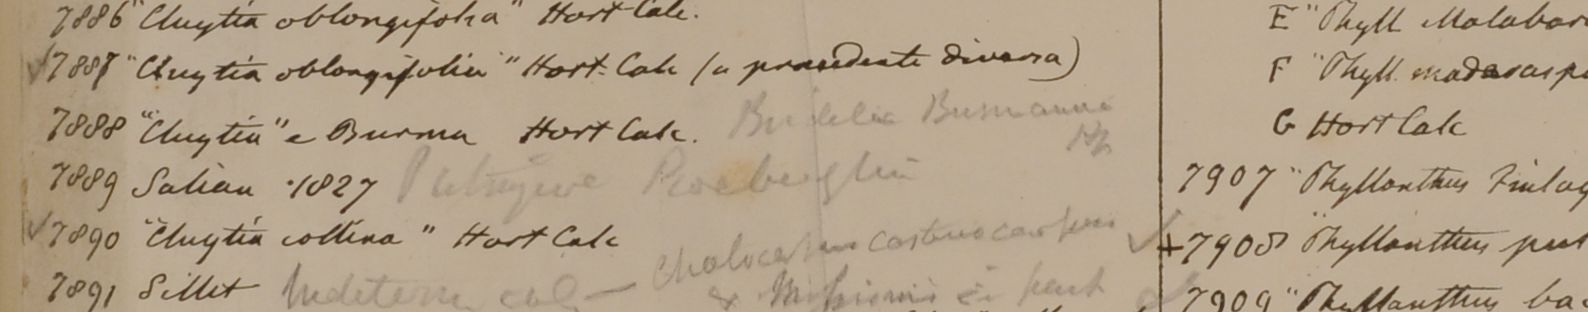 7886 "Cluytia oblongifolia" Hort Calc.
7887 "Cluytia oblongifolia" Hort. Calc (a precedente diversa)
7888 "Cluytia" e Burma Hort Calc. Bridelia Burmanna
7889 Salian 1827 Putranjiva Roxburghii
7890 "Cluytia collina" Hort Calc
7891 Sillet Indeterm
E "Phyll Malabar
F "Phyll.
G Hort Calc
7907 "Phyllanthus Finlay
+7908 "Phyllanthus
7909 "Phyllanthus ba